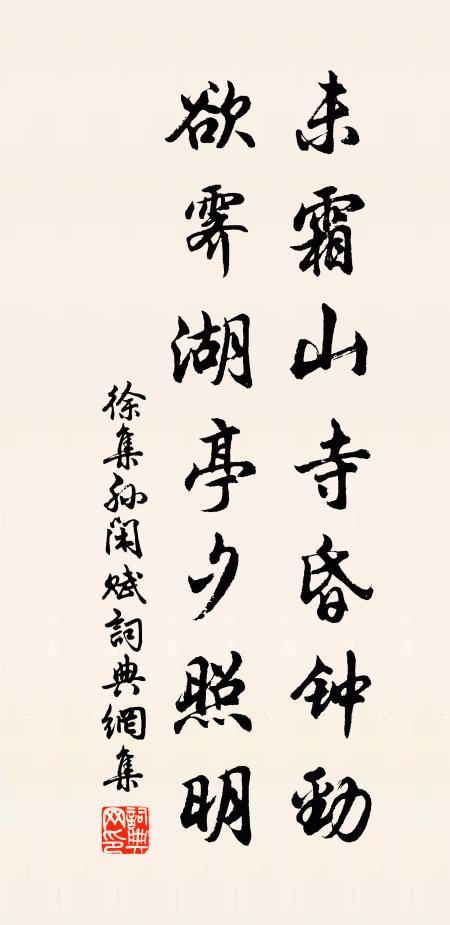 未霜山寺昏钟劲
欲霁湖亭夕照明
徐集孙闲赋詞典網集
詞典網印